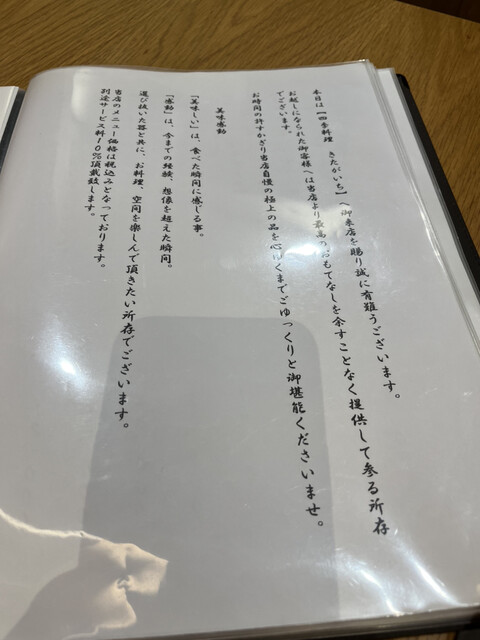 本日は【四季料理　きたがいち】へ御来店を賜り誠に有難うございます。
お越しになられた御客様へは当店より最高のおもてなしを余すことなく提供して参る所存
でございます。
お時間の許すかぎり当店自慢の極上の品を心ゆくまでごゆっくりと御堪能くださいませ。
美味感動
「美味しい」は、食べた瞬間に感じる事。
「感動」は、今までの経験、想像を超えた瞬間。
選び抜いた器と共に、お料理、空間を楽しんで頂きたい所存でございます。
当店のメニュー価格は税込みとなっております。
別途サービス料10%頂戴致します。